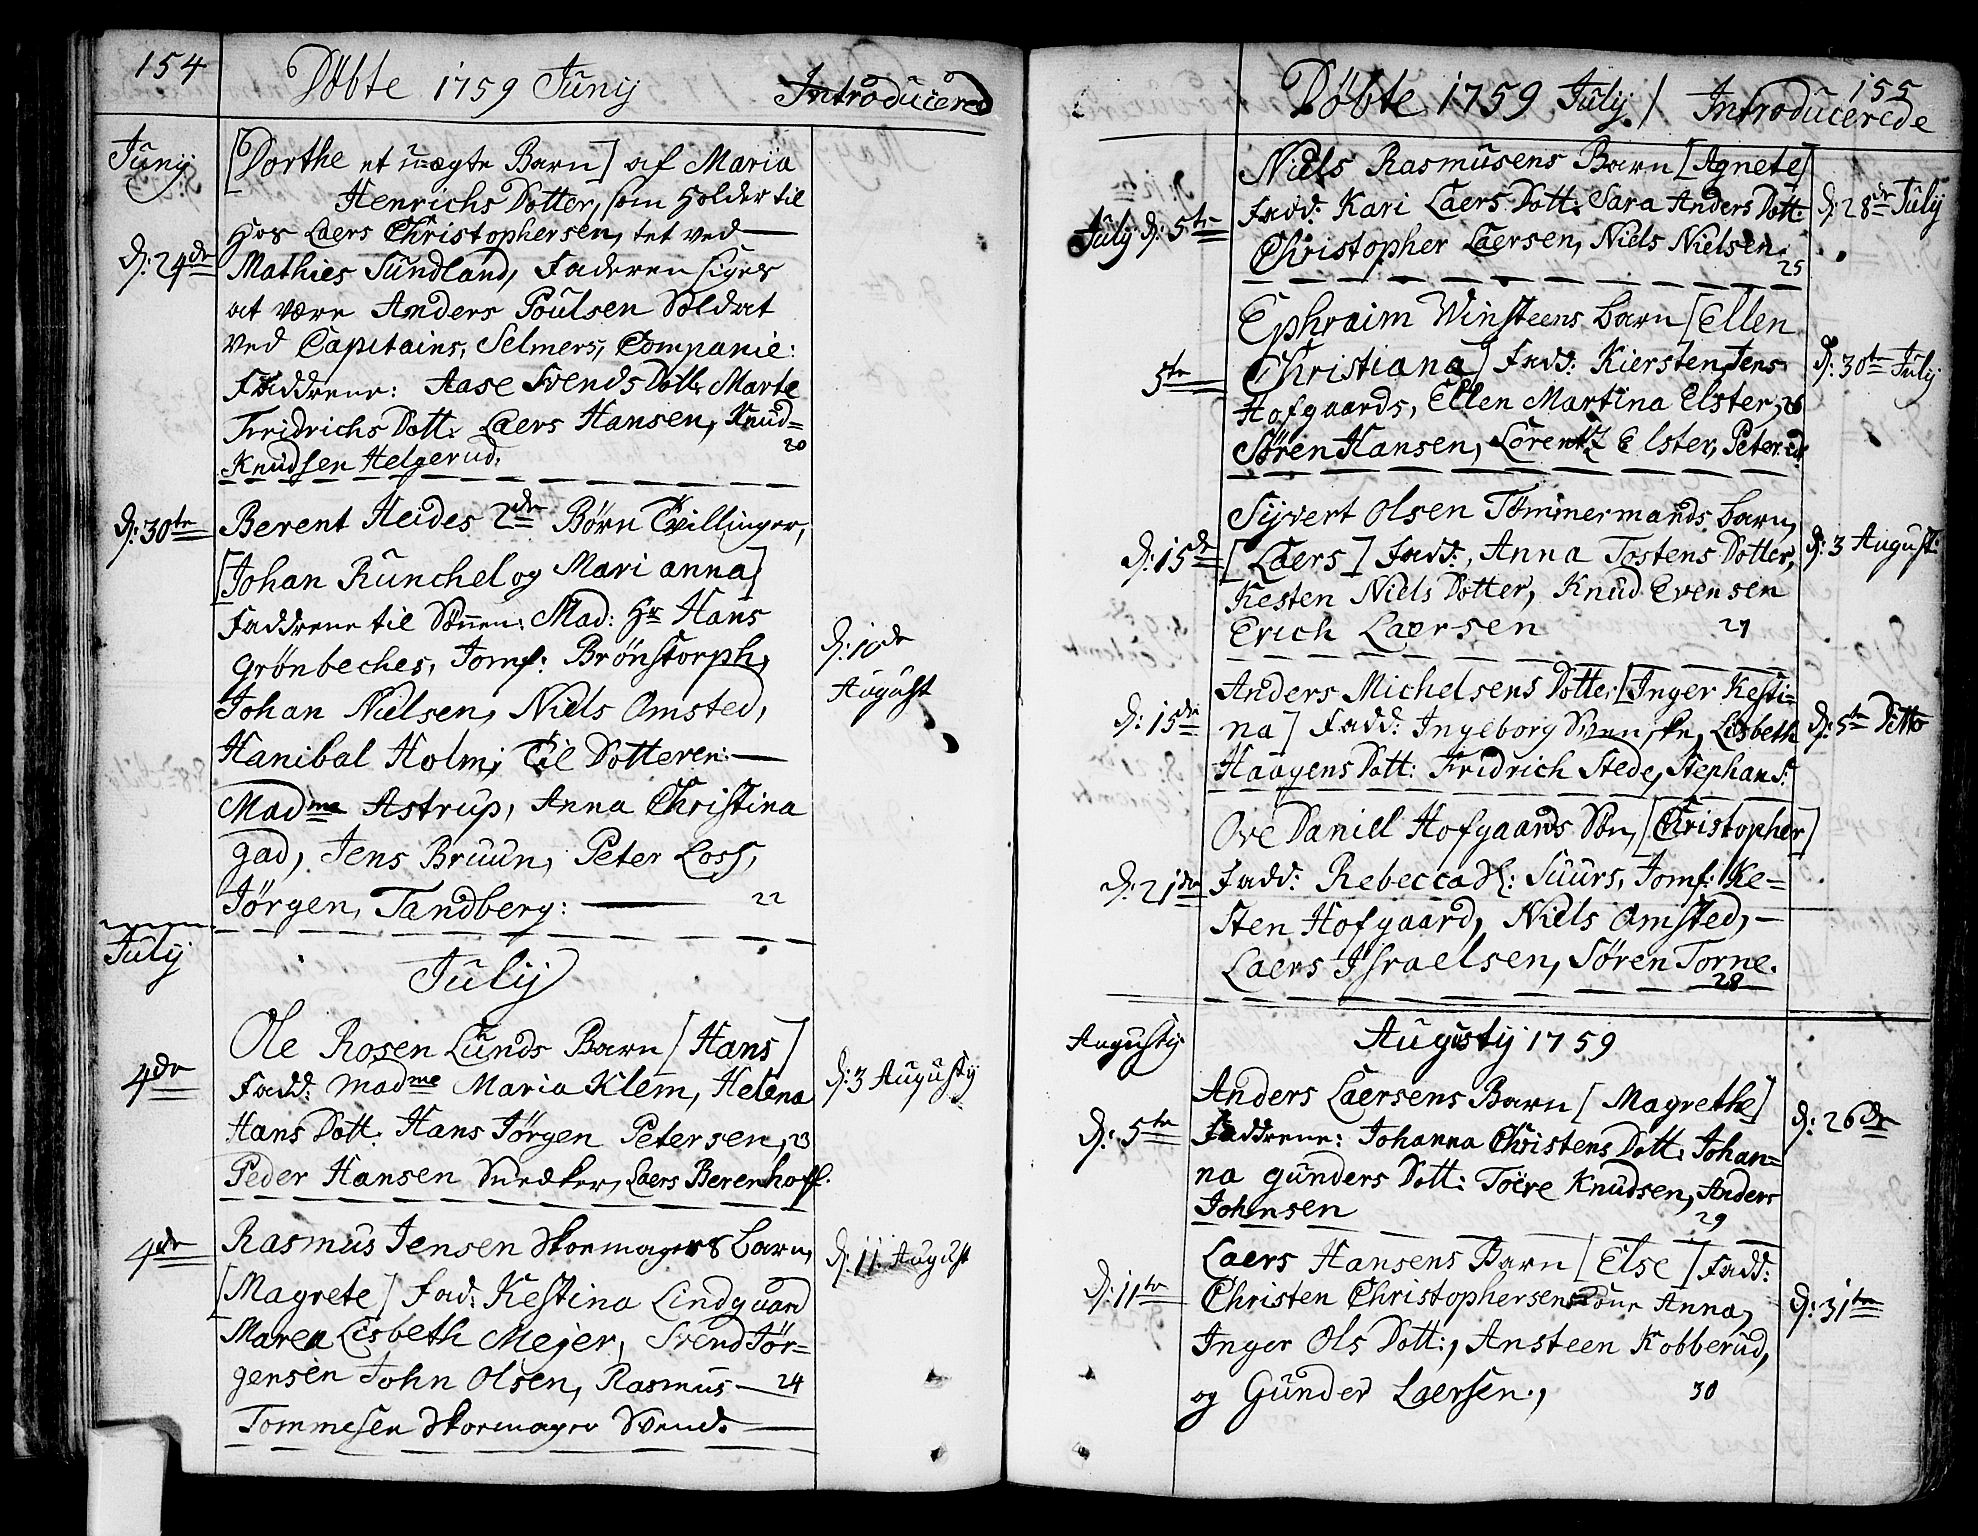 154
Døbte 1759 Junij
Introducered
Junij
[Dorthe et uægte Barn] af Maria
Henrichs Dotter, som holder til
hos Laers Christophersen, tet ved
d: 24de
Mathies Sundland, Faderen siges
at være Anders Poulsen Soldat
ved Capitains, Selmers, Companie:
Faddrene: Aase Svends Dott: Marte
Fridrichs Dott: Laers Hansen, Knud=
20
Knudsen Helgerud.
d: 30te
Berent Heides 2de Børn Tvillinger,
[Johan Runchel og Mari anna]
Faddrene til Sønnen: Mad: Hr Hans
Grønbeches, Jomf: Brönstorph,
d: 10de
August
Johan Nielsen, Niels Omsted,
Hanibal Holm; Til Dotteren:
Madme Astrup, Anna Christina
gad, Jens Bruun, Peter Loss,
Jørgen, Tandberg: 22
July
Julij
Ole Rosen Lunds Barn [Hans]
4de
Fadd: Madme Maria Klem, Helena
d: 3 Augustij
Hans Dott: Hans Jörgen Petersen, 23
Peder Hansen Snedker, Laers Berenhoff.
4de
Rasmus Jensen Skomagers barn,
d: 11 August
[Magrete] Fad: Kestina Lindgaard
Maren Lisbeth Mejer, Svend Jør=
gensen John Olsen, Rasmus 24
Tommesen Skomager Svend.
155
Døbte 1759 July / Introducerede
Niels Rasmusens Barn [Agnete]
July d: 5te
Fadd: Kari Laers Dott: Sara Anders Dott:
d: 28de July
Christopher Laersen, Niels Nielsen.
25
Ephraim Winsteens barn [Ellen
5te
Christiana] Fadd: Kiersten Jens
d: 30te July
Hofgaards, Ellen Martina Elster, 26
Søren Hansen, Lorentz Elster, Peter
Sijvert Olsen Tømmermands barn,
d: 15de
[Laers] Fadd:, Anna Tostens Dotter,
d: 3 August:
Kesten Niels Dotter, Knud Evensen
Erich Laersen 27
Anders Michelsens Dotter [Inger Kesti=
d: 15de
na] Fadd: Ingeborg Svenske, Lisbeth
d: 5te Ditto
Haagens Dott: Fridrich Stede, Stephan S:
Ove Daniel Hofgaards Søn, [Christopher]
d: 21de
Fadd: Rebecca Suurs, Jomf: Ke=
sten Hofgaard, Niels Omsted,
Laers Israelsen, Søren Torne.
28
Augustij
Augustij 1759
Anders Laersens Barn [Magrethe]
d: 5te
Faddrene: Johanna Christens Dott: Johan=
d: 26de
na Gunders Dott: Toere Knudsen, Anders
Johnsen 29
Laers Hansens Barn [Else] Fadd:
d: 11te
Christen Christophersens Kone Anna,
d: 31te
Inger Ols Dott:, Ansteen Kobberud,
og Gunder Laersen., 30